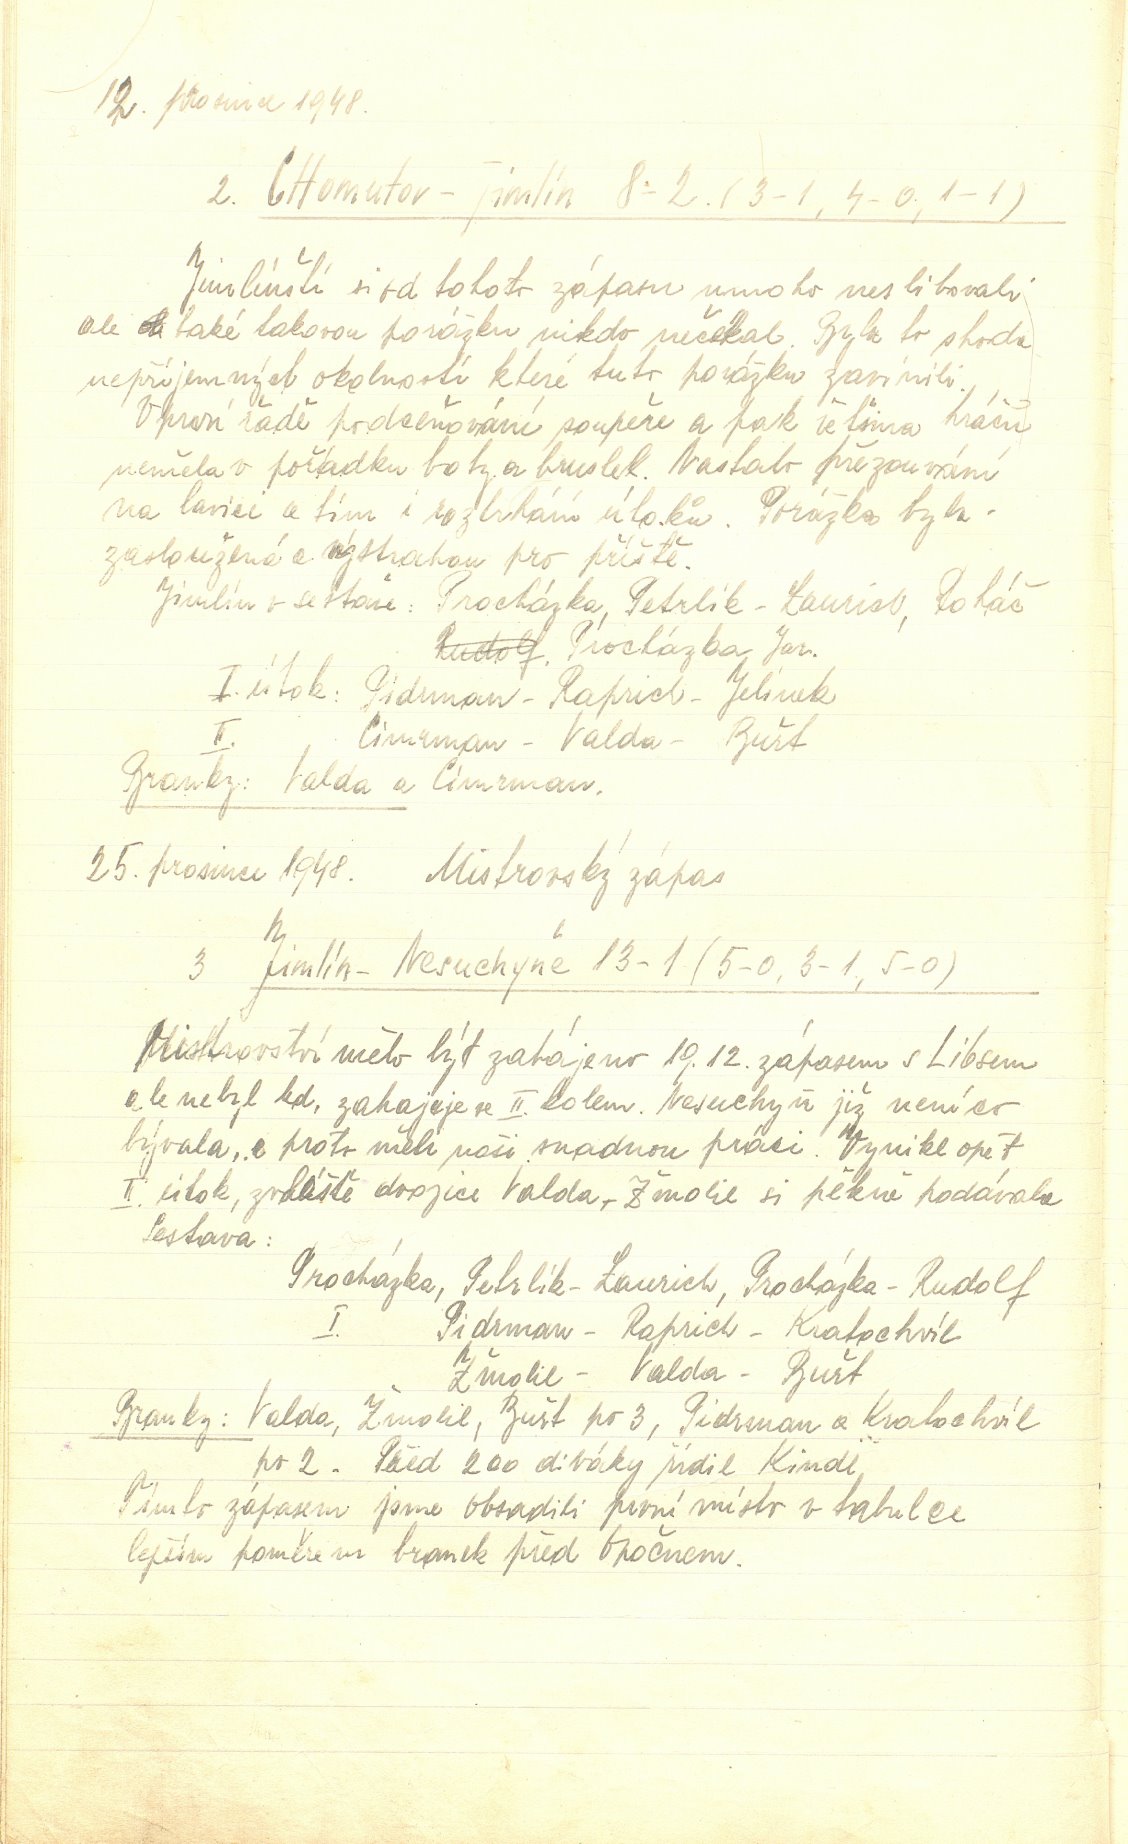 12. prosince 1948.
2. CHomutov - Jimlín 8-2. (3-1, 4-0, 1-1)
Jimlínští si od tohoto zápasu mnoho neslibovali
ale také takovou porážku nikdo nečekal. Byla to shoda
nepříjemných okolností které tuto porážku zavinili.
V první řadě podceňování soupeře a pak většina hráčů
neměla v pořádku boty a bruslek. Nastalo přezouvání
na lavici a tím i roztrhání útoků. Porážka byla
zasloužená a výstrahou pro příště.
Jimlín v sestavě: Procházka, Petrlík - Laurich, Roháč
Rudolf, Procházka Jar.
I. útok: Pidrman - Raprich - Jelínek
II. Cimrman - Valda - Bušt
Branky: Valda a Cimrman.
25. prosince 1948. Mistrovský zápas
3 Jimlín - Nesuchyně 13-1 (5-0, 3-1, 5-0)
Mistrovství mělo být zahájeno 19.12. zápasem s Libsem
ale nebyl led, zahajuje se II. kolem. Nesuchyň již není co
bývala, a proto měli naši snadnou práci. Vynikl opět
II. útok, zvláště dvojice Valda, Žmolil si pěkně podávala
Sestava:
Procházka, Petrlík - Laurich, Procházka - Rudolf
I. Pidrman - Raprich - Kratochvíl
Žmolil - Valda - Bušt
Branky: Valda, Žmolil, Bušt po 3, Pidrman a Kratochvíl
po 2. Před 200 diváky řídil Kindl.
Tímto zápasem jsme obsadili první místo v tabulce
lepším poměrem branek před Opočnem.